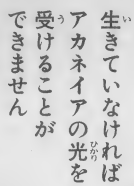 生きていなければ
アカネイアの光を
受けることが
できません